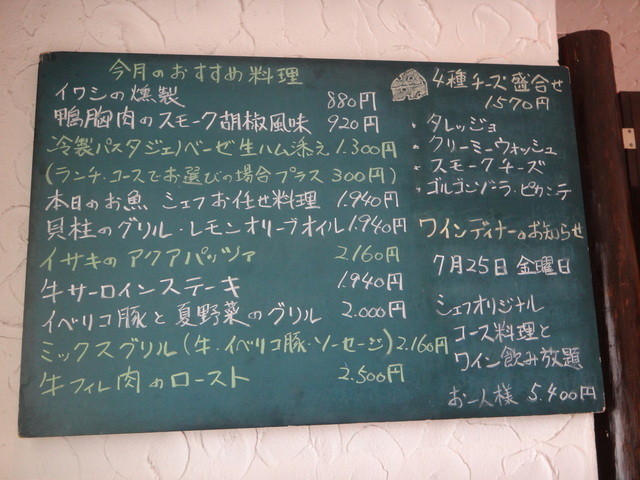 今月のおすすめ料理
イワシの燻製 880円
鴨胸肉のスモーク胡椒風味 920円
冷製パスタジェノベーゼ生ハム添え 1.300円
(ランチ・コースでお選びの場合プラス300円)
本日のお魚 シェフお任せ料理 1.940円
貝柱のグリル・レモンオリーブオイル 1.940円
イサキのアクアパッツァ 2160円
牛サーロインステーキ 1.940円
イベリコ豚と夏野菜のグリル 2.000円
ミックスグリル(牛・イベリコ豚・ソーセージ) 2.160円
牛フィレ肉のロースト 2.500円
4種チーズ盛合せ
1570円
・タレッジョ
・クリーミーウォッシュ
・スモークチーズ
・ゴルゴンゾーラ・ピカンテ
ワインディナーのお知らせ
7月25日 金曜日
シェフオリジナル
コース料理と
ワイン飲み放題
お一人様 5.400円